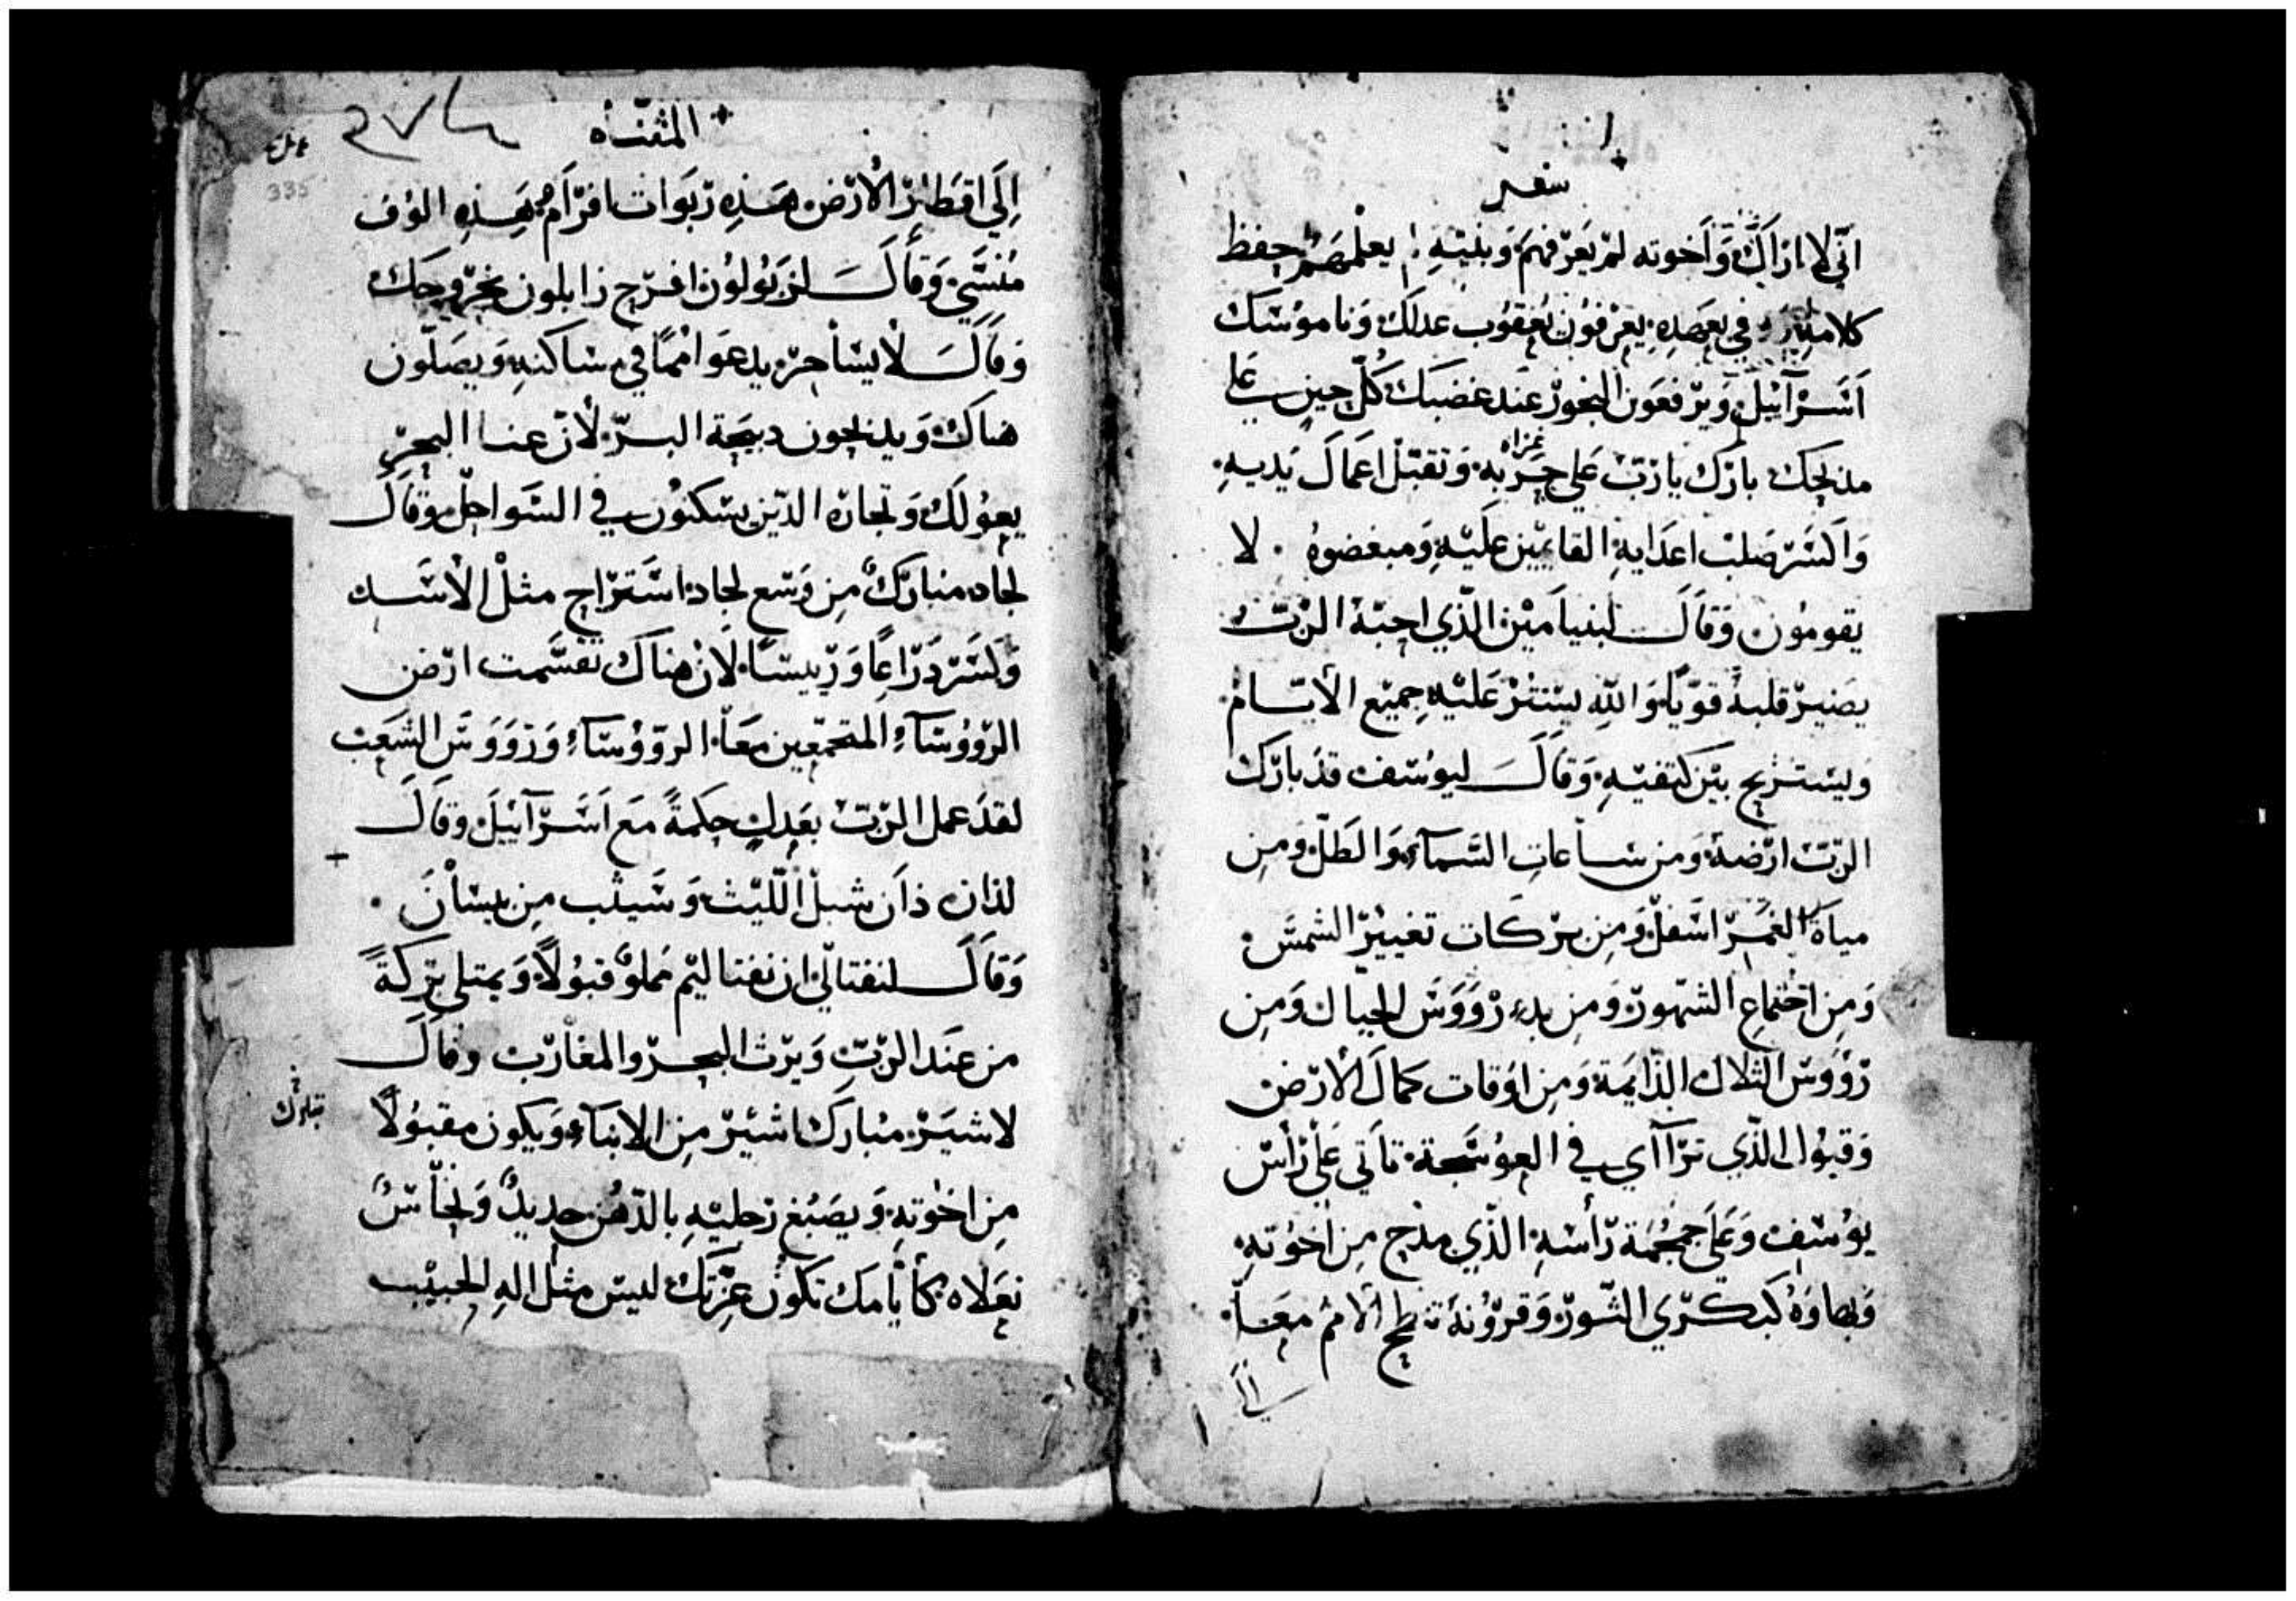 سفر
اني لا اراك وَأخوته لم يَعرّفهم وَبنيه لم يعلم حفظ
كلامك في بعصده يعرفون يعقوب عدلك وَناموسك
اسرآئيل ويرفعون البخور عند غضبك كلّ حين علي
مذبحك بارك يا ربّ على جزبه وَتقبّل اعمال يديه
وَاكسر صلب اعدايه القايمين عليه وَمبغضوه لا
يقومون وَقال لبنيامين الذي احبّه الربّ
يصير قلبه قويّا وَالله يستتر عليه جميع الأيّام
وَيستريح بين كتفيه وَقال ليوسف قد بارك
الربّ ارضه وَمن ساعات السّمآء وَالطلّ وَمن
مياه الغمر اسفل وَمن بركات تغيير الشمس
وَمن اجتماع الشهور وَمن بدء رؤوس الجبال وَمن
رؤوس التلال الدّايمة وَمن اوقات كمال الأرض
وَقبوا الذي ترآاي في العوسجة تأتي على رأس
يوسف وَعلى جمجمة رأسه الذي مدح من اخوته
وَبهاوه كبكري الثور وَقرونه تنطح الأمم معاً
إلى
المثناه
٢٧٤
335
إلى اقطار الأرض هذه ربوات افرام وهذه الوف
منسّي وَقال لزبولون افرح زابلون بخروجك
وَقال لأيساخر يدعوا امماً في مساكنه وَيصلّون
هناك وَيذبحون دبيحة البرّ لأنّ عنا البحر
يعولك وَتجاره الذين يسكنون في السواحل وقال
لجاد مبارك من وَسع لجاد استراح مثل الأسد
وَكسر ذراعاً وَرييساً لأن هناك تقسّمت ارض
الرّؤوسآء المتجمّعين معاً الروؤسآء وَرؤوس الشعب
لقد عمل الربّ بعدل حكمةً مع اسرآئيل وَقال
لذان ذان شبل اللّيث وَسيثب من بيسان
وَقال لنفتالي ان نفتاليم مملو قبولاً وَيمتلي بركةً
من عند الربّ وَيرث البحر والمغارب وقال
لاشير مبارك اشير من الابنآء وَيكون مقبولاً
من اخوته وَيصبغ رجليه بالدّهن حديدٌ وَنحاسٌ
نعلاه كأيامك تكون عزّتك ليس مثل اله الحبيب
تبارك